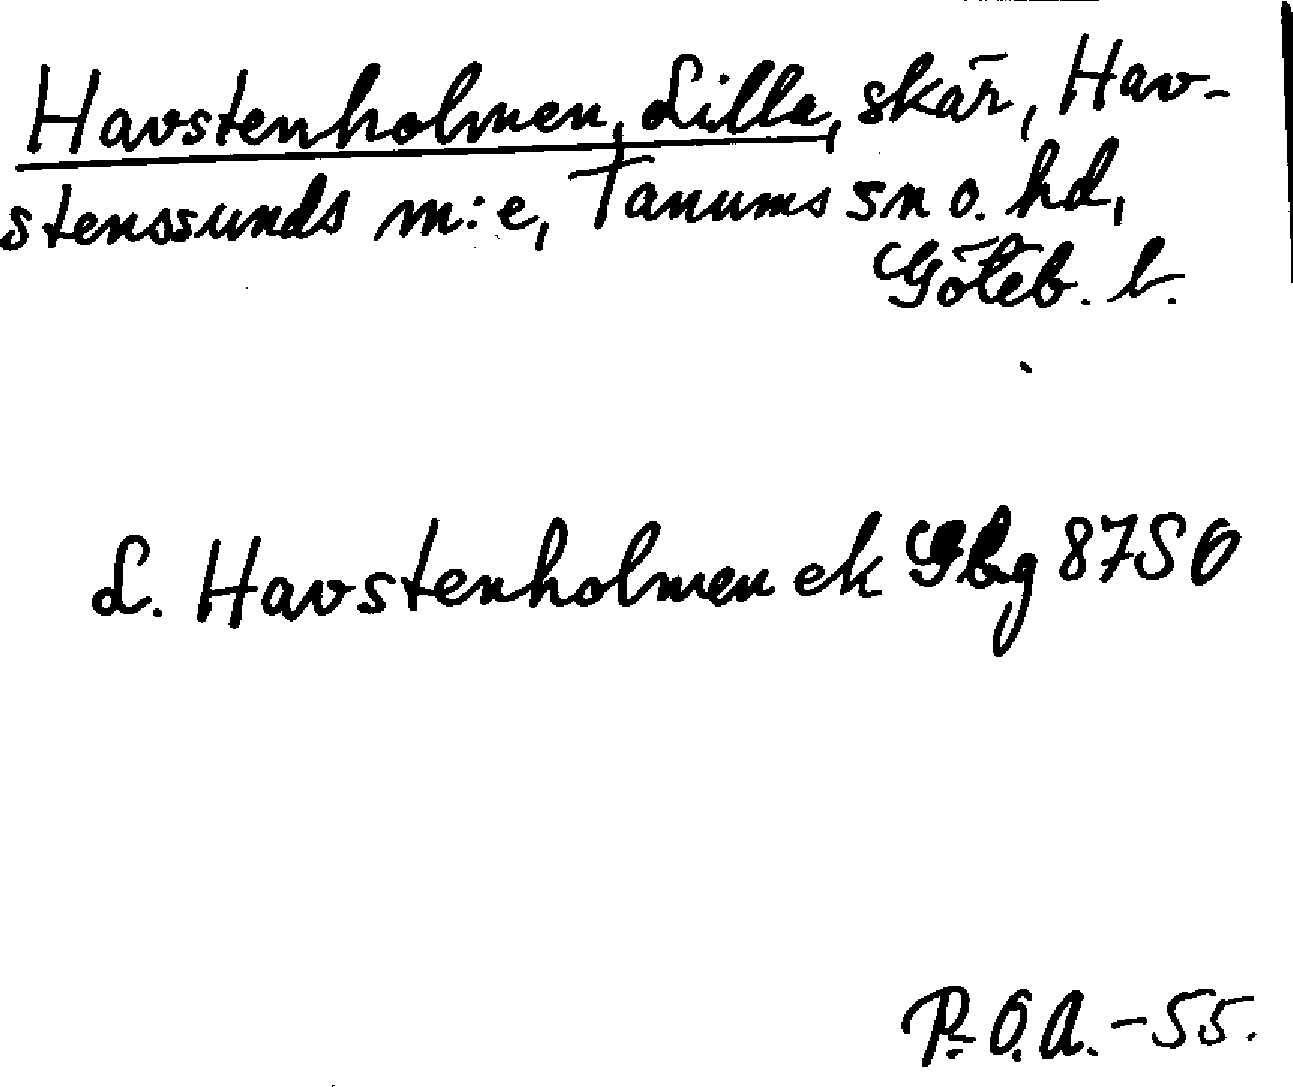 Havstenholmen, Lilla, skär, Hav-
stenssunds m:e, Tanums sn o. hd,
Göteb. l.
L. Havstenholmen ek Gbg 87SO
P.O.A. -55.